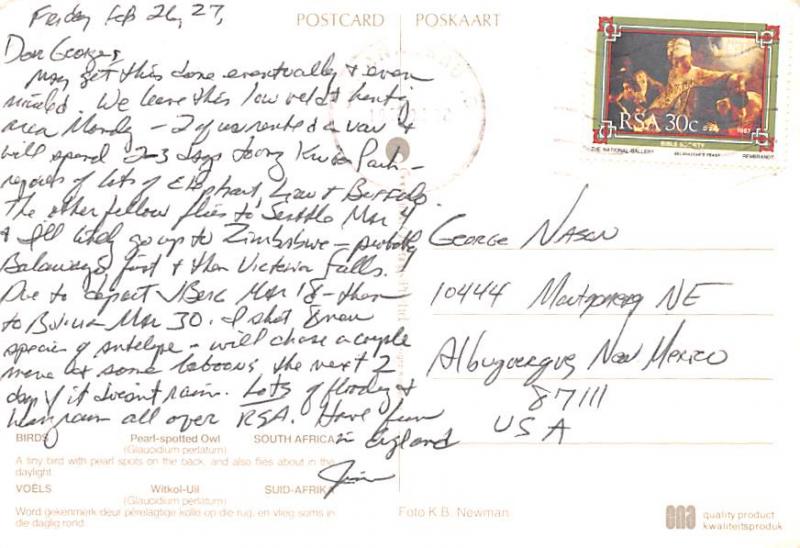 Friday Feb 26, 27,
POSTCARD
POSKAART
Dear George,
May get this done eventually & even
mailed. We leave this low veldt hunting
area Monday - 2 of us rented a van &
will spend 2-3 days doing Kruger Park -
reports of lots of Elephant, Lion & Buffalo.
The other fellow flies to Seattle Mar 4
& I'll likely go up to Zimbabwe - probably
first & then Victoria Falls.
Due to depart JBerg Mar 18 - then
to Mar 30. I shot 8 new
species of antelope - will chase a couple
more & some baboons the next 2
days if it doesn't rain. Lots of flooding &
rain all over RSA. Have fun
in England
Jim
RSA 30c
1987
BIBLE SOCIETY
THE NATIONAL GALLERY
BELSHAZZAR'S FEAST
REMBRANDT
George Nason
10444 Montgomery NE
Albuquerque, New Mexico
87111
USA
BIRDS
Pearl-spotted Owl
SOUTH AFRICA
(Glaucidium perlatum)
A tiny bird with pearl spots on the back, and also flies about in the
daylight.
VOËLS
Witkol-Uil
SUID-AFRIKA
(Glaucidium perlatum)
Word gekenmerk deur pêrelagtige kolle op die rug, en vlieg soms in
die daglig rond.
Foto K.B. Newman
quality product
kwaliteitsproduk